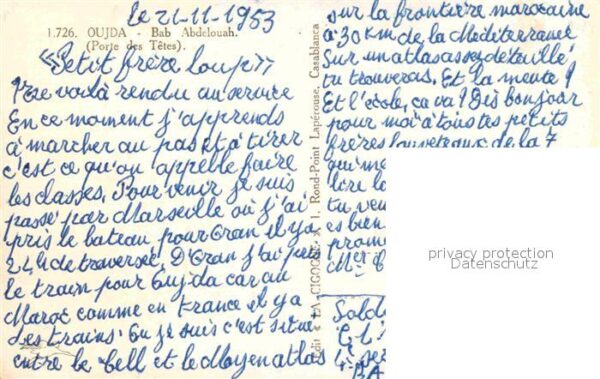 le 21-11-1953
1.726. OUJDA - Bab Abdelouah.
(Porte des Têtes).
«Petit frère loup»
Me voilà rendu au service
En ce moment j'apprends
à marcher au pas et à tirer
c'est ce qu'on appelle faire
les classes. Pour venir je suis
passé par Marseille où j'ai
pris le bateau pour Oran il y a
24h de traversée. D'Oran j'ai pris
le train pour Oujda car au
Maroc comme en France il y a
des trains. Ou je suis c'est situé
entre le Tell et le Moyen atlas
Edit « LA CIGOGNE » 1, Rond-Point Lapérouse, Casablanca
sur la frontière marocaine
à 30 km de la Mediterranée
Sur un atlas assez détaillé
tu trouveras. Et la meute ?
Et l'école, ça va ? Dis bonjour
pour moi à tous tes petits
frères louveteaux de la 7
qui me
lire
tu
es bien
prom
privacy protection
Datenschutz
Sold